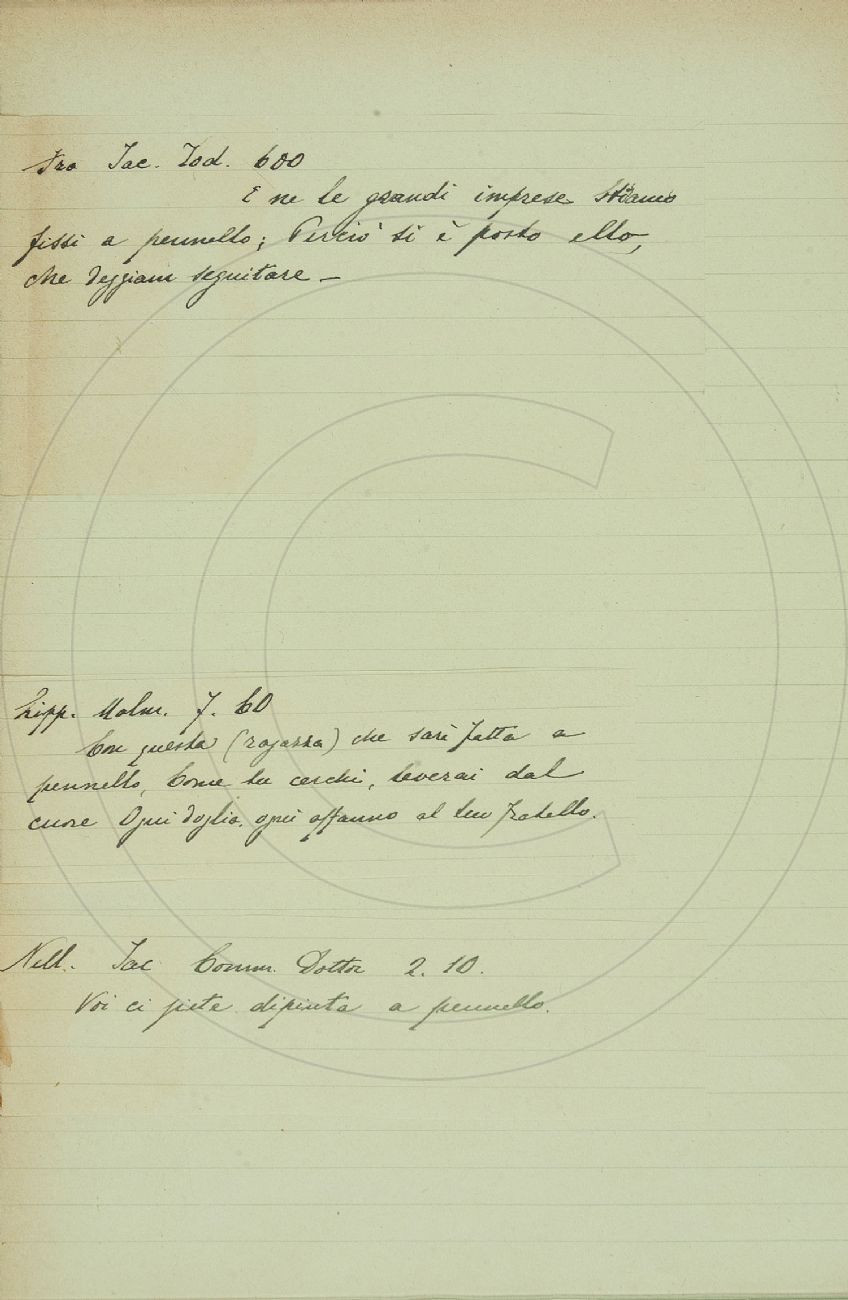 Fra Jac. Tod. 600
E ne le grandi imprese Stiamo
fissi a pennello; Perciò si è posto ello,
che deggiam seguitare —
Lipp. Malm. 7. 60
Con questa (ragazza) che sarì fatta a
pennello, Come tu cerchi, leverai dal
cuore Ogni doglia, ogni affanno al tuo fratello.
Nell. Jac. Comm. Dottor 2. 10.
Voi ci siete dipinta a pennello.